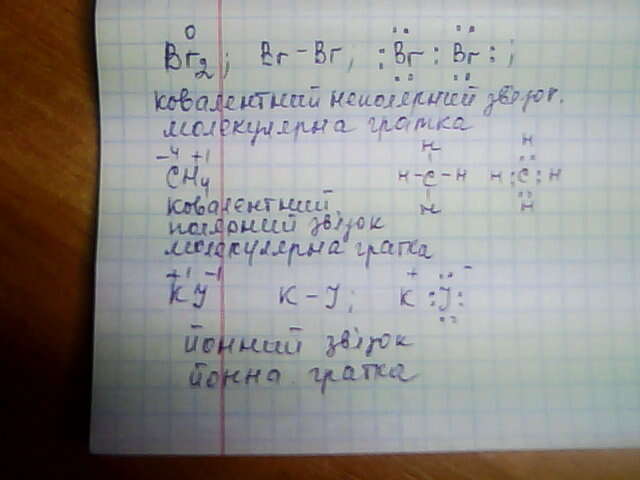 0
Br2; Br – Br; :Br:Br:;
ковалентний неполярний зв'язок.
молекулярна гратка
-4 +1 H H
CH4 H-C-H H:C:H
ковалентний H H
полярний зв'язок
молекулярна гратка
+1 -1 + -
KJ K – J; K :J:
йонний зв'язок
йонна гратка